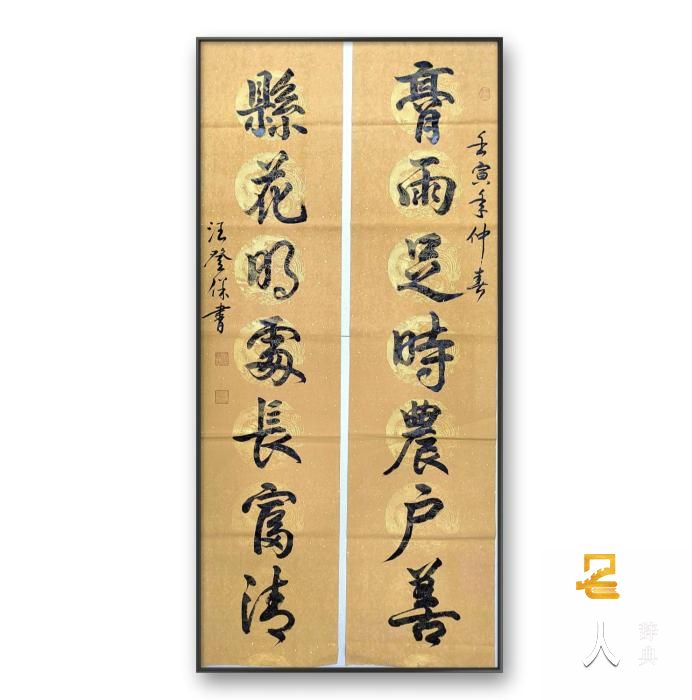 壬寅年仲春
膏雨足時農户善
縣花明處長富清
汪登保書
名人
辞典